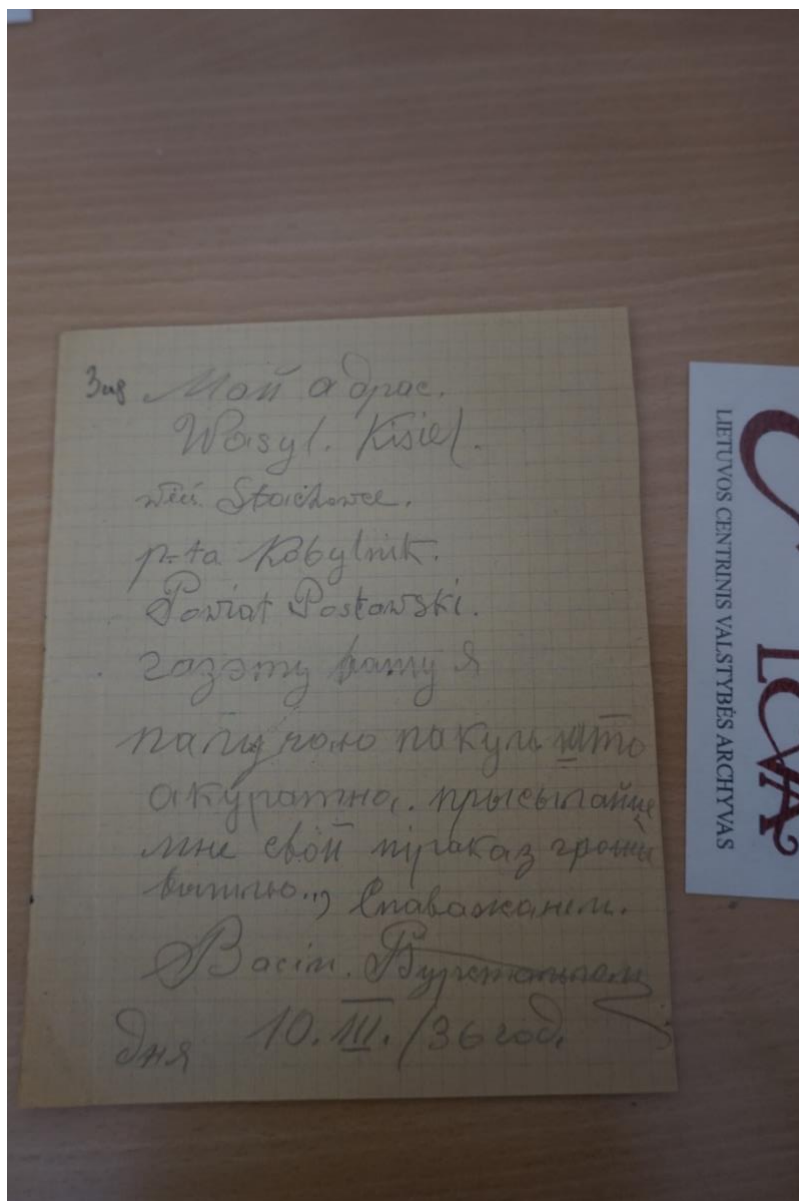 Мой адрас.
Wasyl. Kisiel.
wieś Stachowce.
p-ta Kobylnik.
Powiat Postawski.
газэту вашу я
палучаю пакуль што
акуратно,. прысылайце
мне свой пераказ грошы
вышлю.., Спаважанем.
Васіл.
дня 10. III. /36 год.
LIETUVOS CENTRINIS VALSTYBĖS ARCHYVAS
LCVA